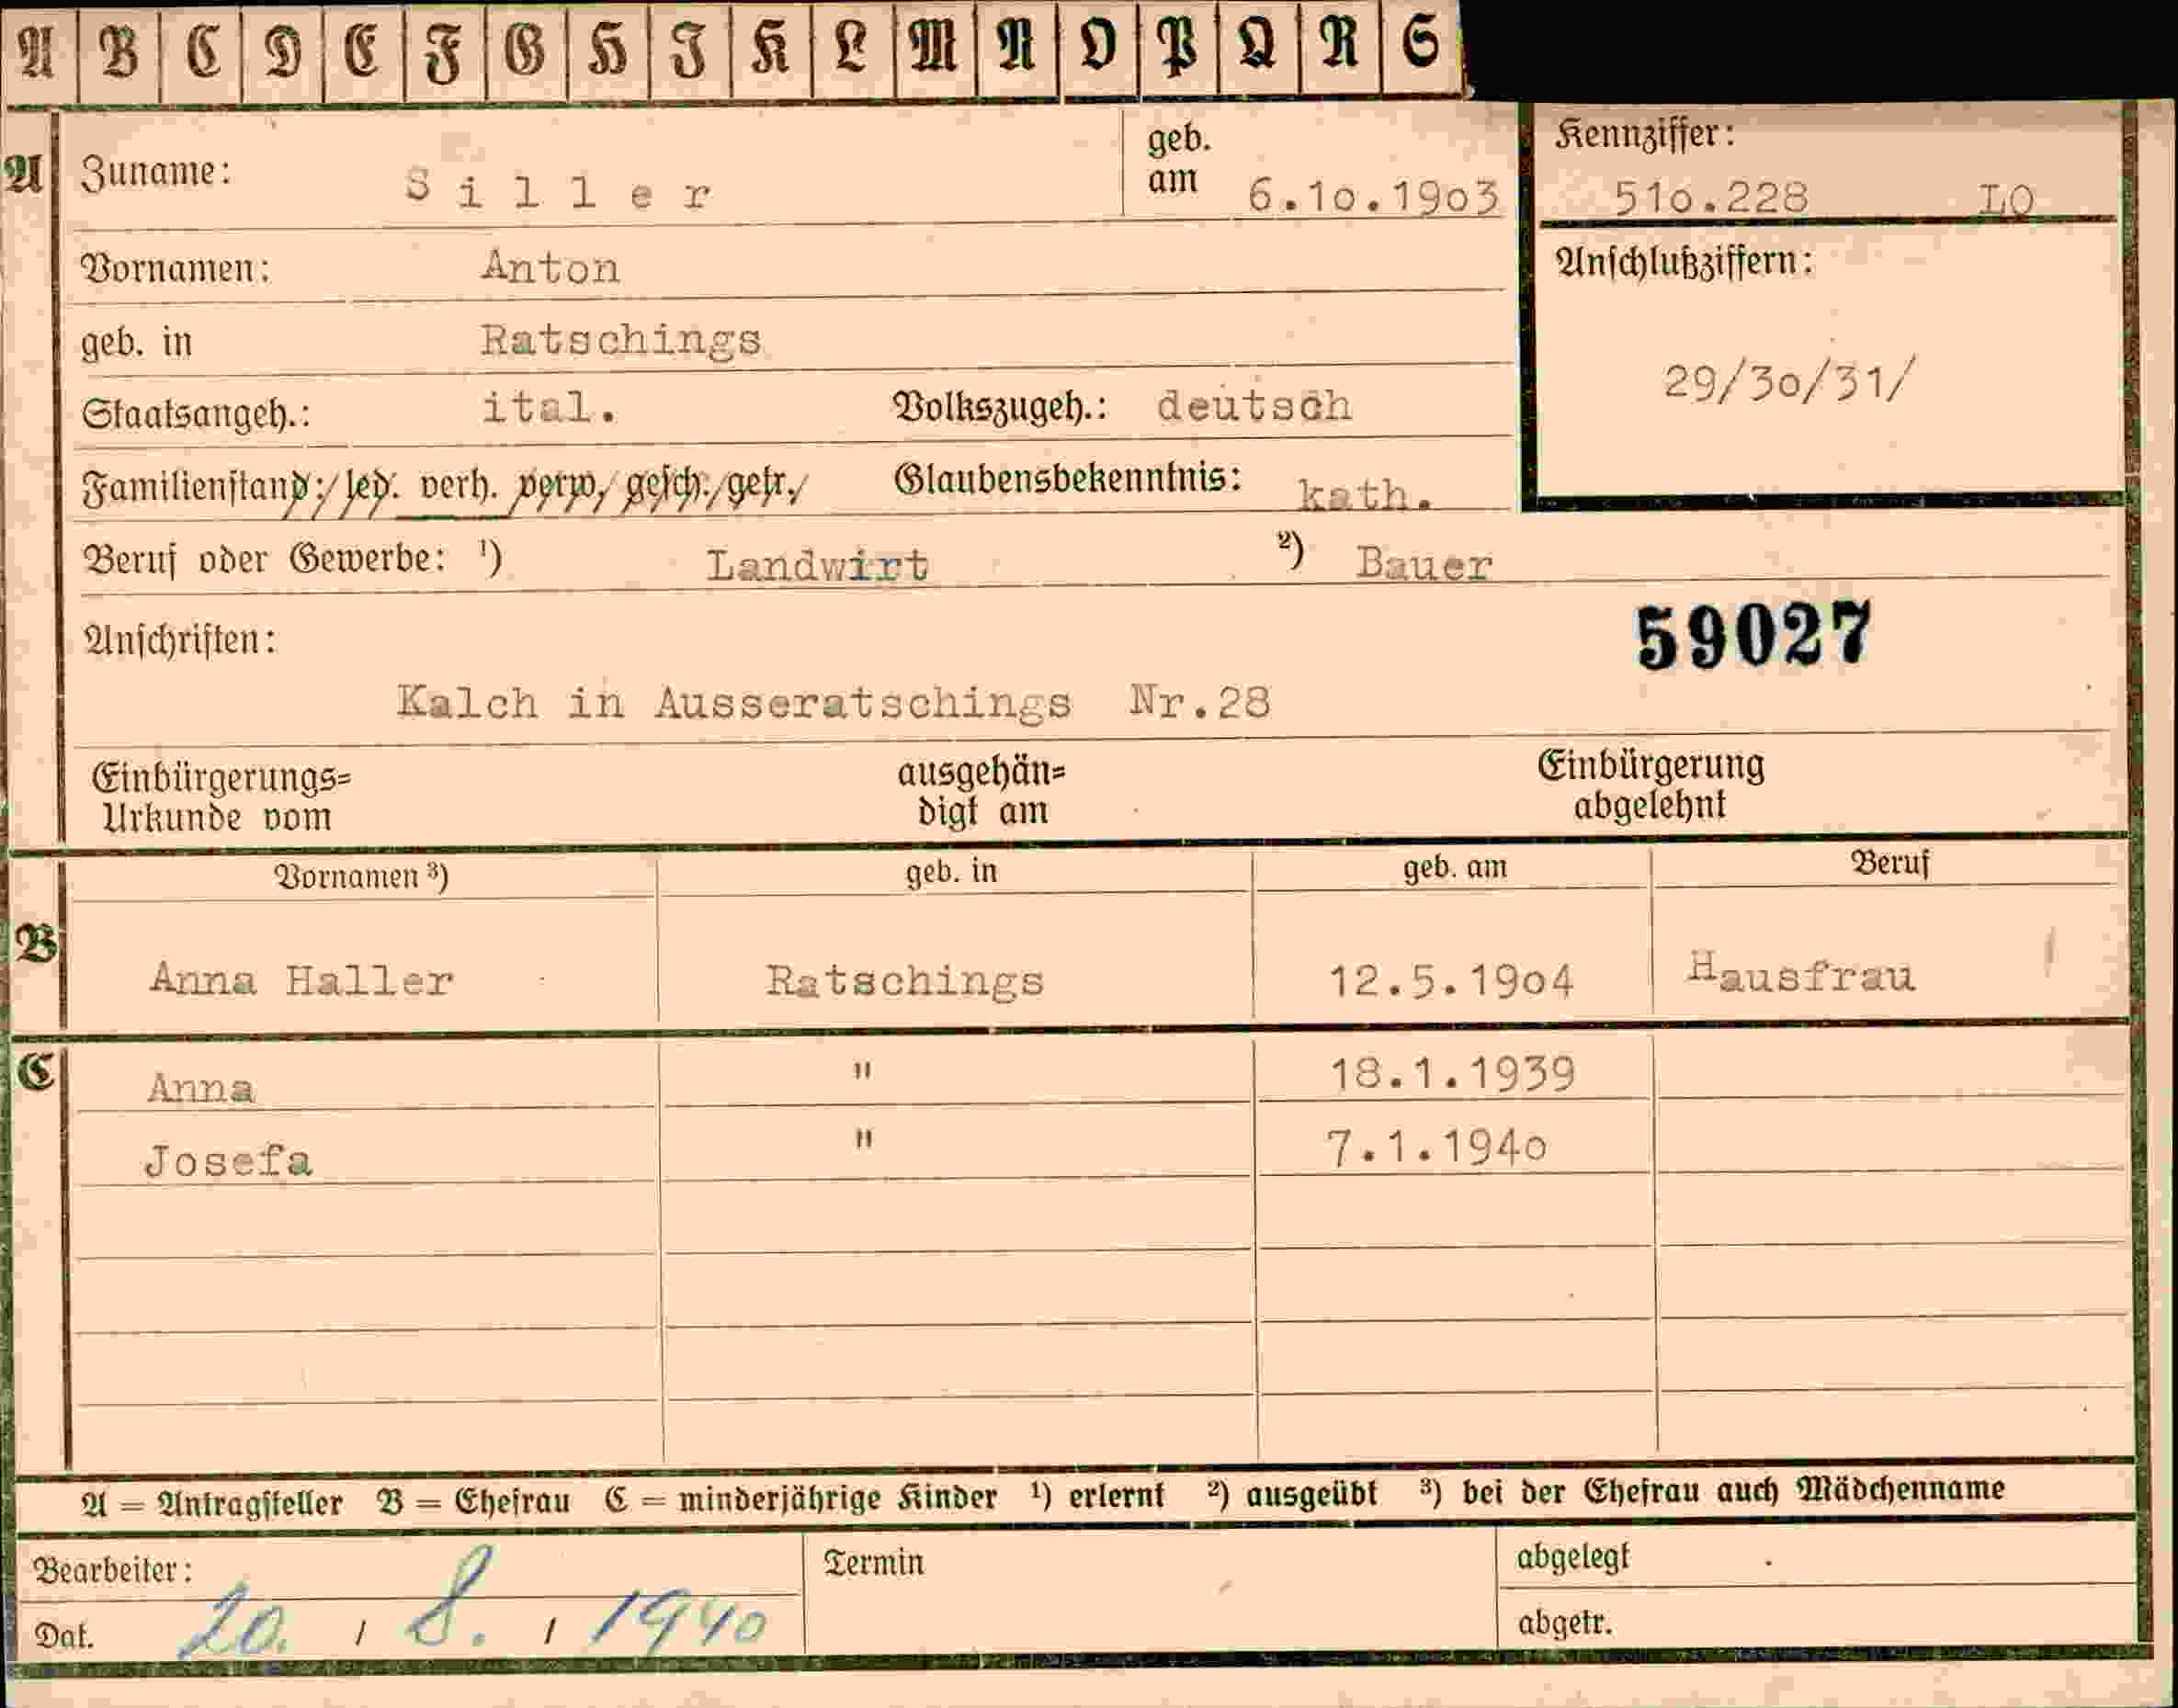 A B C D E F G H I K L M N O P Q R S
A Zuname: Siller geb. am 6.10.1903
Kennziffer: 510.228 LO
Vornamen: Anton
Anschlußziffern: 29/30/31/
geb. in Ratschings
Staatsangeh.: ital. Volkszugeh.: deutsch
Familienstand: led. verh. verw. gesch. getr. Glaubensbekenntnis: kath.
Beruf oder Gewerbe: ¹) Landwirt ²) Bauer
Anschriften: 59027
Kalch in Ausseratschings Nr.28
Einbürgerungs= ausgehän= Einbürgerung
Urkunde vom digt am abgelehnt
Vornamen ³) geb. in geb. am Beruf
B Anna Haller Ratschings 12.5.1904 Hausfrau
C Anna " 18.1.1939
Josefa " 7.1.1940
A = Antragsteller B = Ehefrau C = minderjährige Kinder ¹) erlernt ²) ausgeübt ³) bei der Ehefrau auch Mädchenname
Bearbeiter: Termin abgelegt
Dat. 20. / 8. / 1940 abgetr.